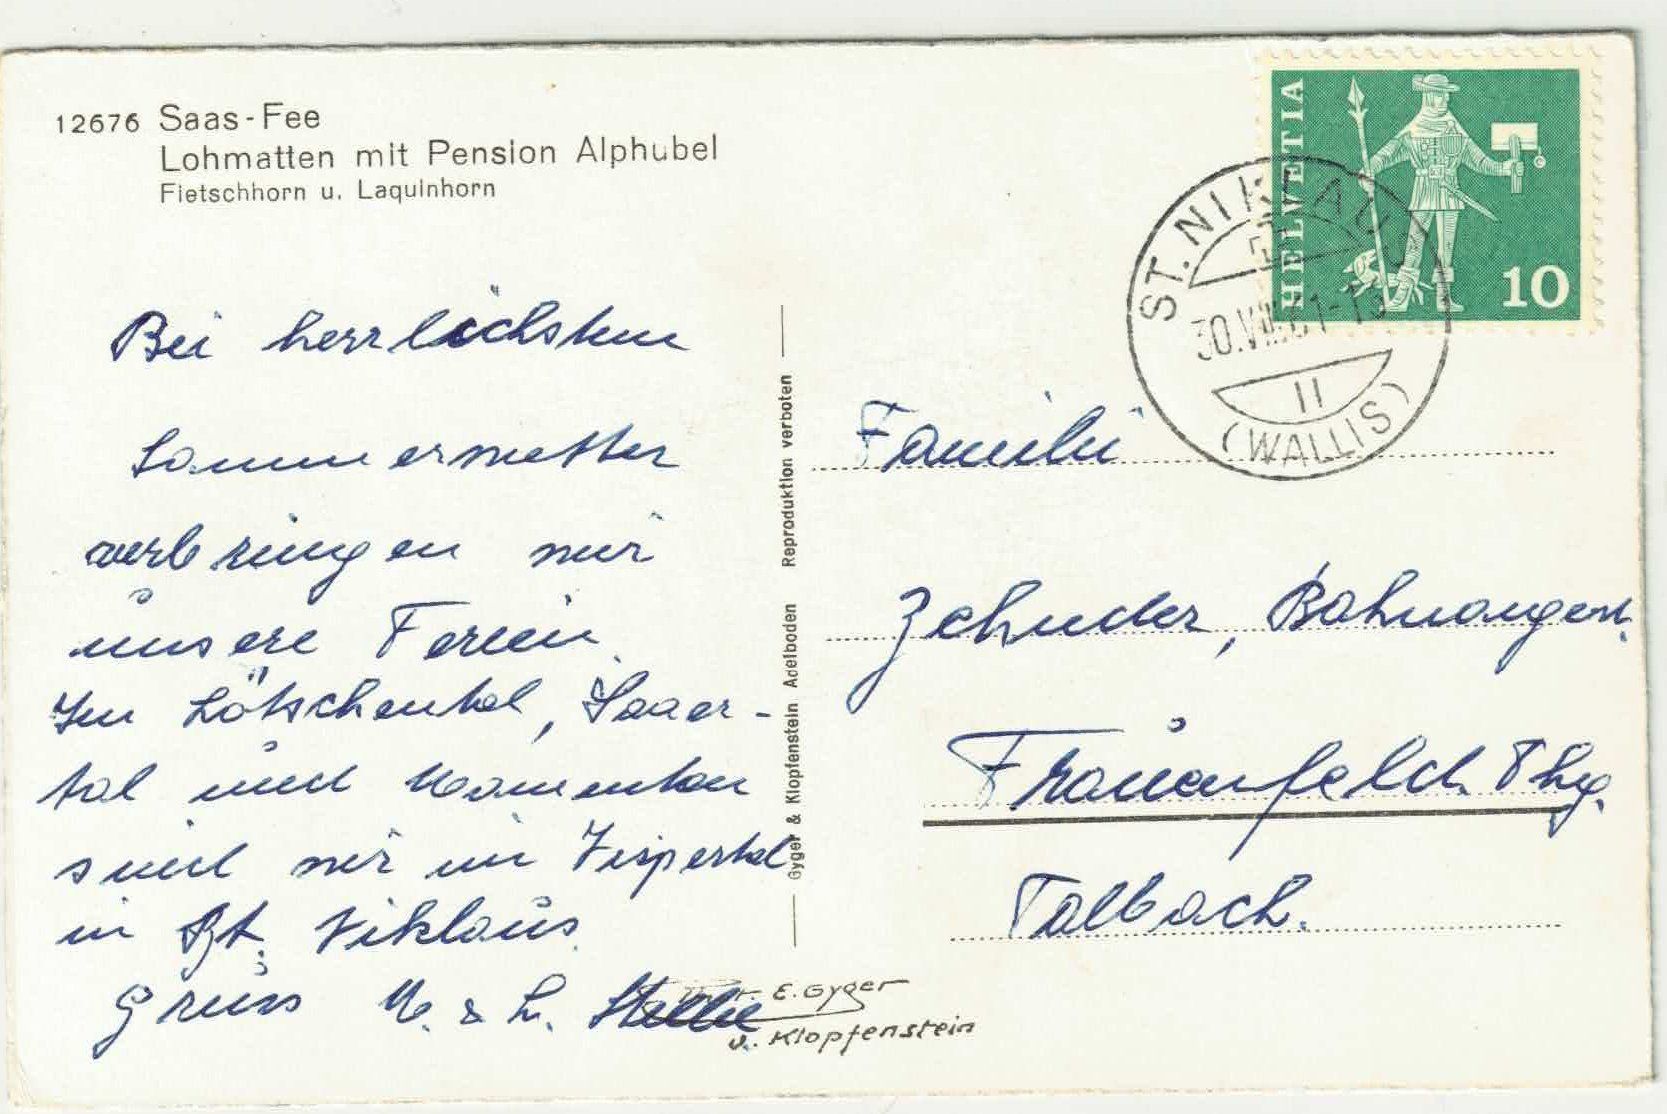 12676 Saas-Fee
Lohmatten mit Pension Alphubel
Fietschhorn u. Laquinhorn
HELVETIA
10
ST. NIKLAUS
30.VIII.61-15
II
(WALLIS)
Bei herrlichstem
Sommerwetter
verbringen wir
unsere Ferien.
Im Lötschental, Saaser-
tal und momentan
sind wir im Vispertal
in St. Niklaus.
Gruss M. & L.
Reproduktion verboten
Gyger & Klopfenstein Adelboden
E. Gyger
u. Klopfenstein
Familie
Zehnder, Bahnangest.
Frauenfeld Thg.
Talbach.